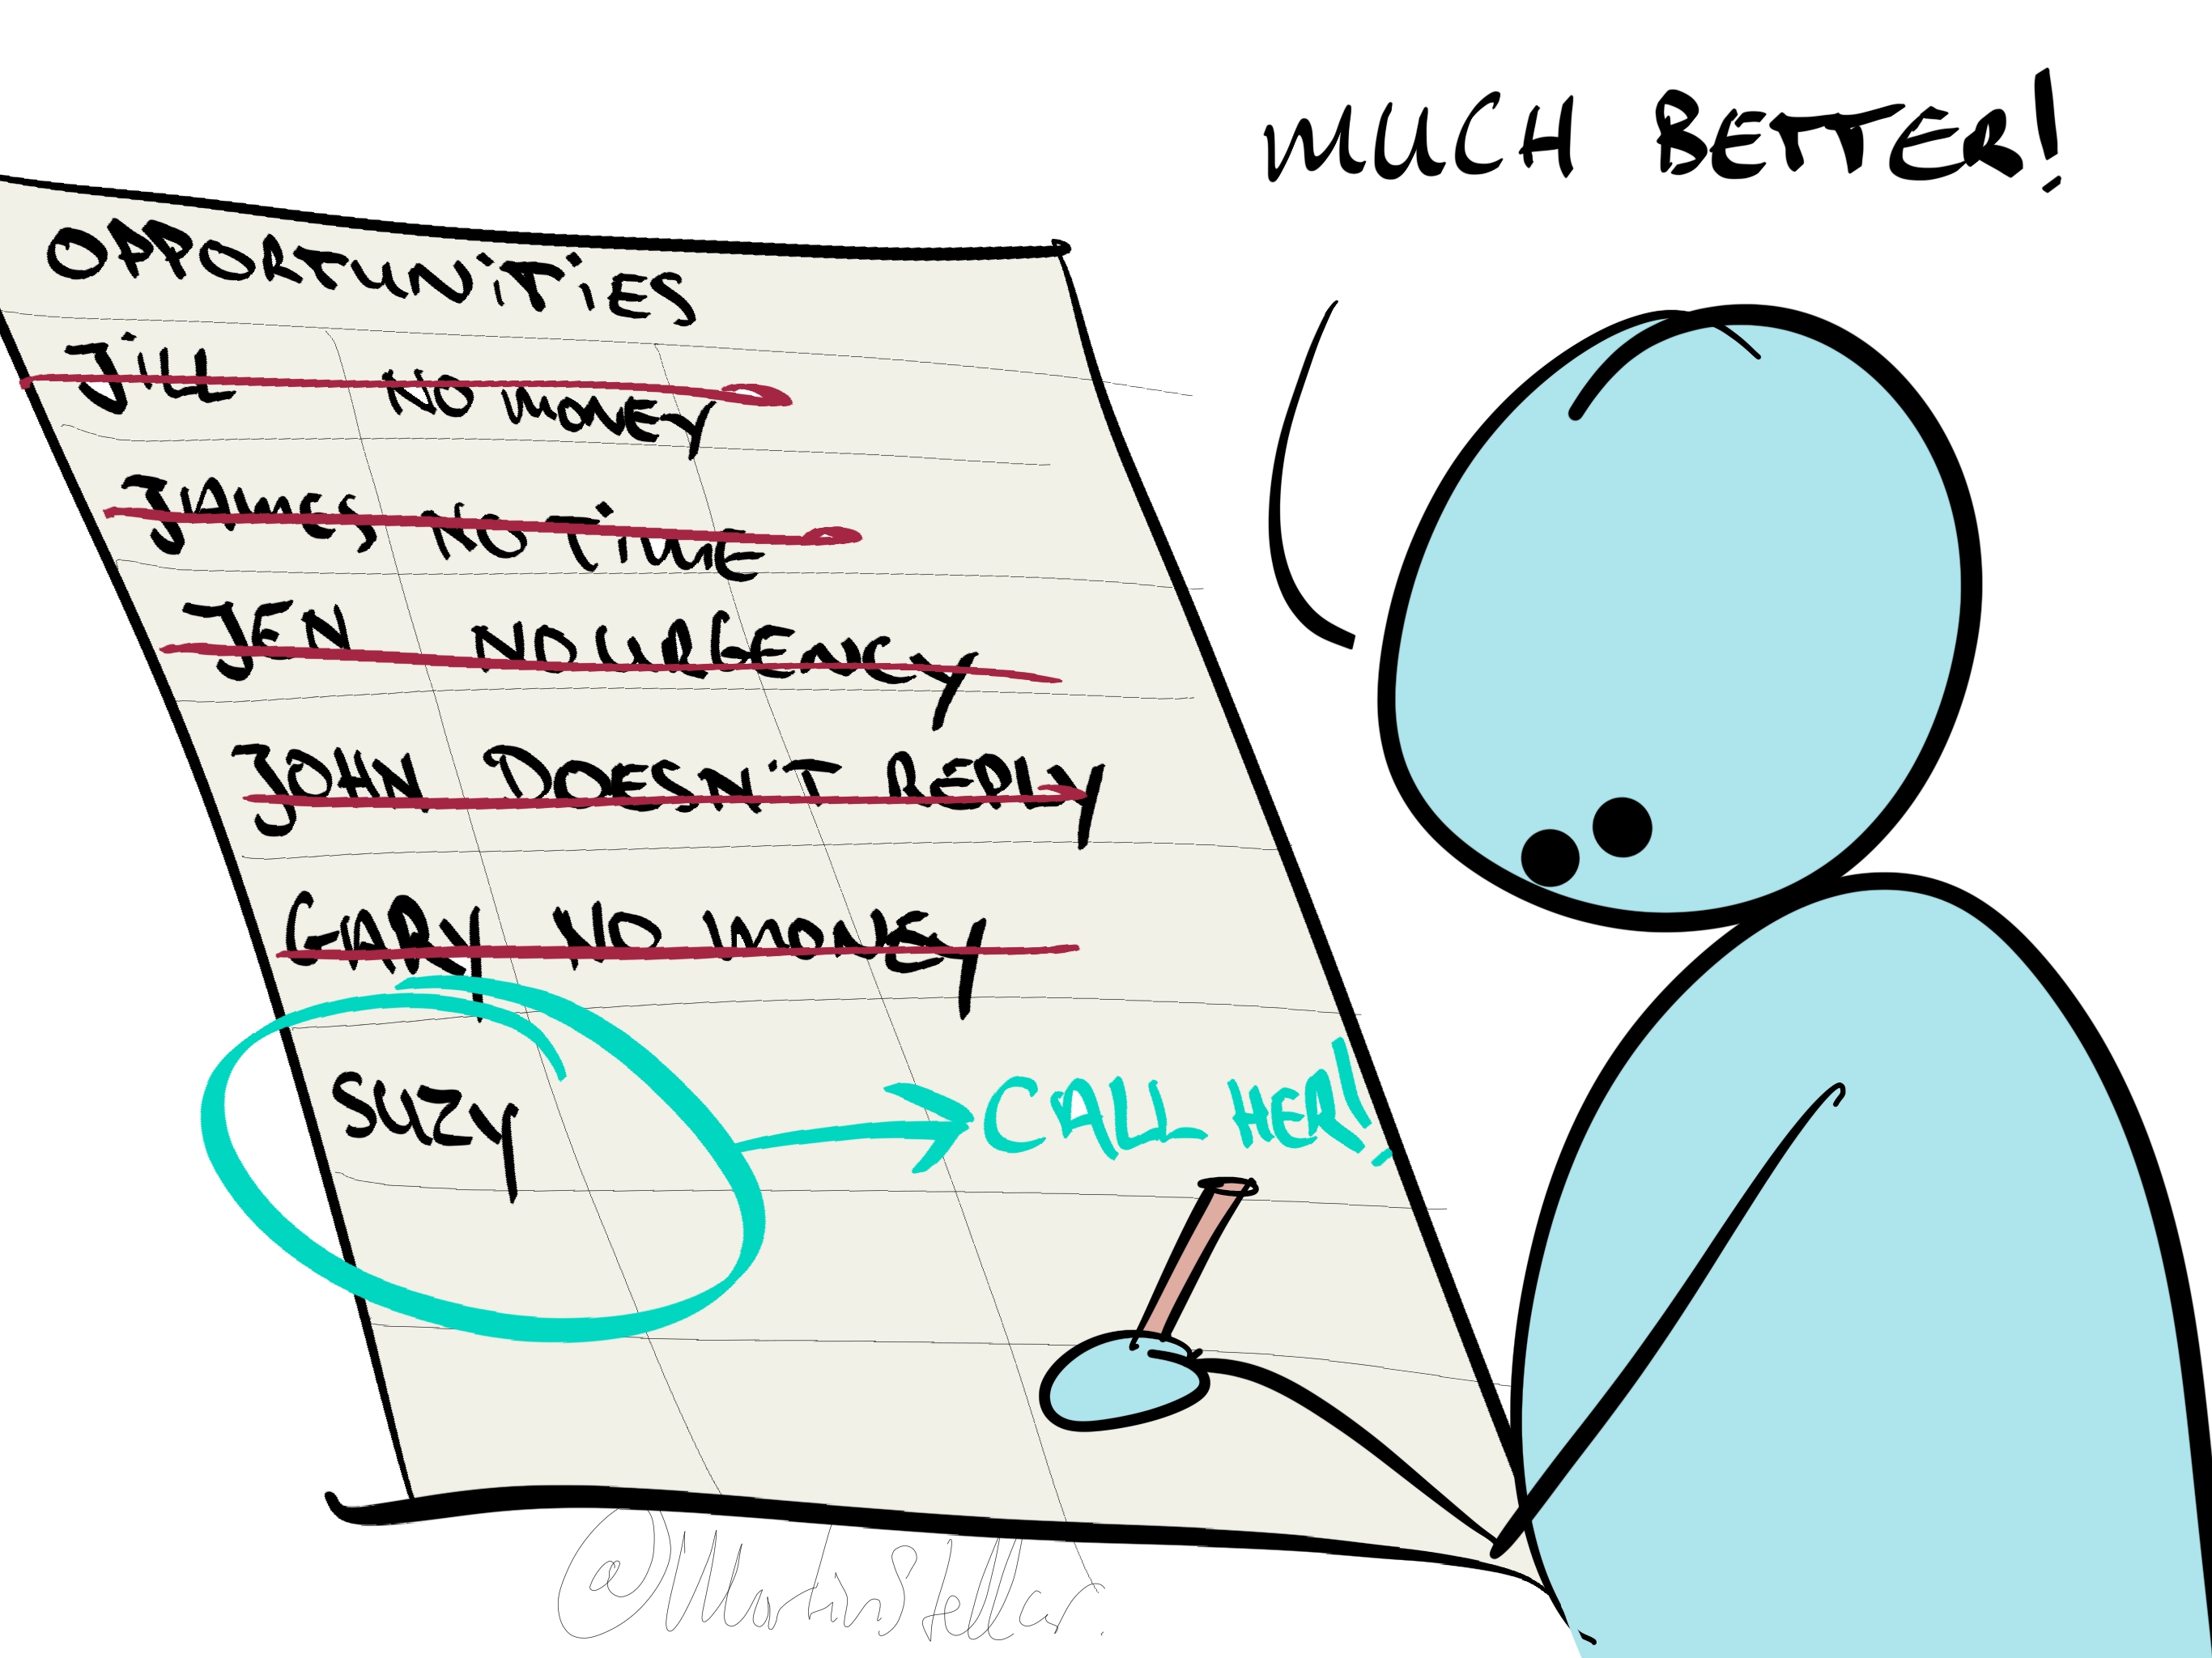 MUCH BETTER!
OPPORTUNITIES
JILL NO MONEY
JAMES NO TIME
JEN NO URGENCY
JOHN DOESN'T REPLY
GARY NO MONEY
SUZY → CALL HER!
@MartinStellar.